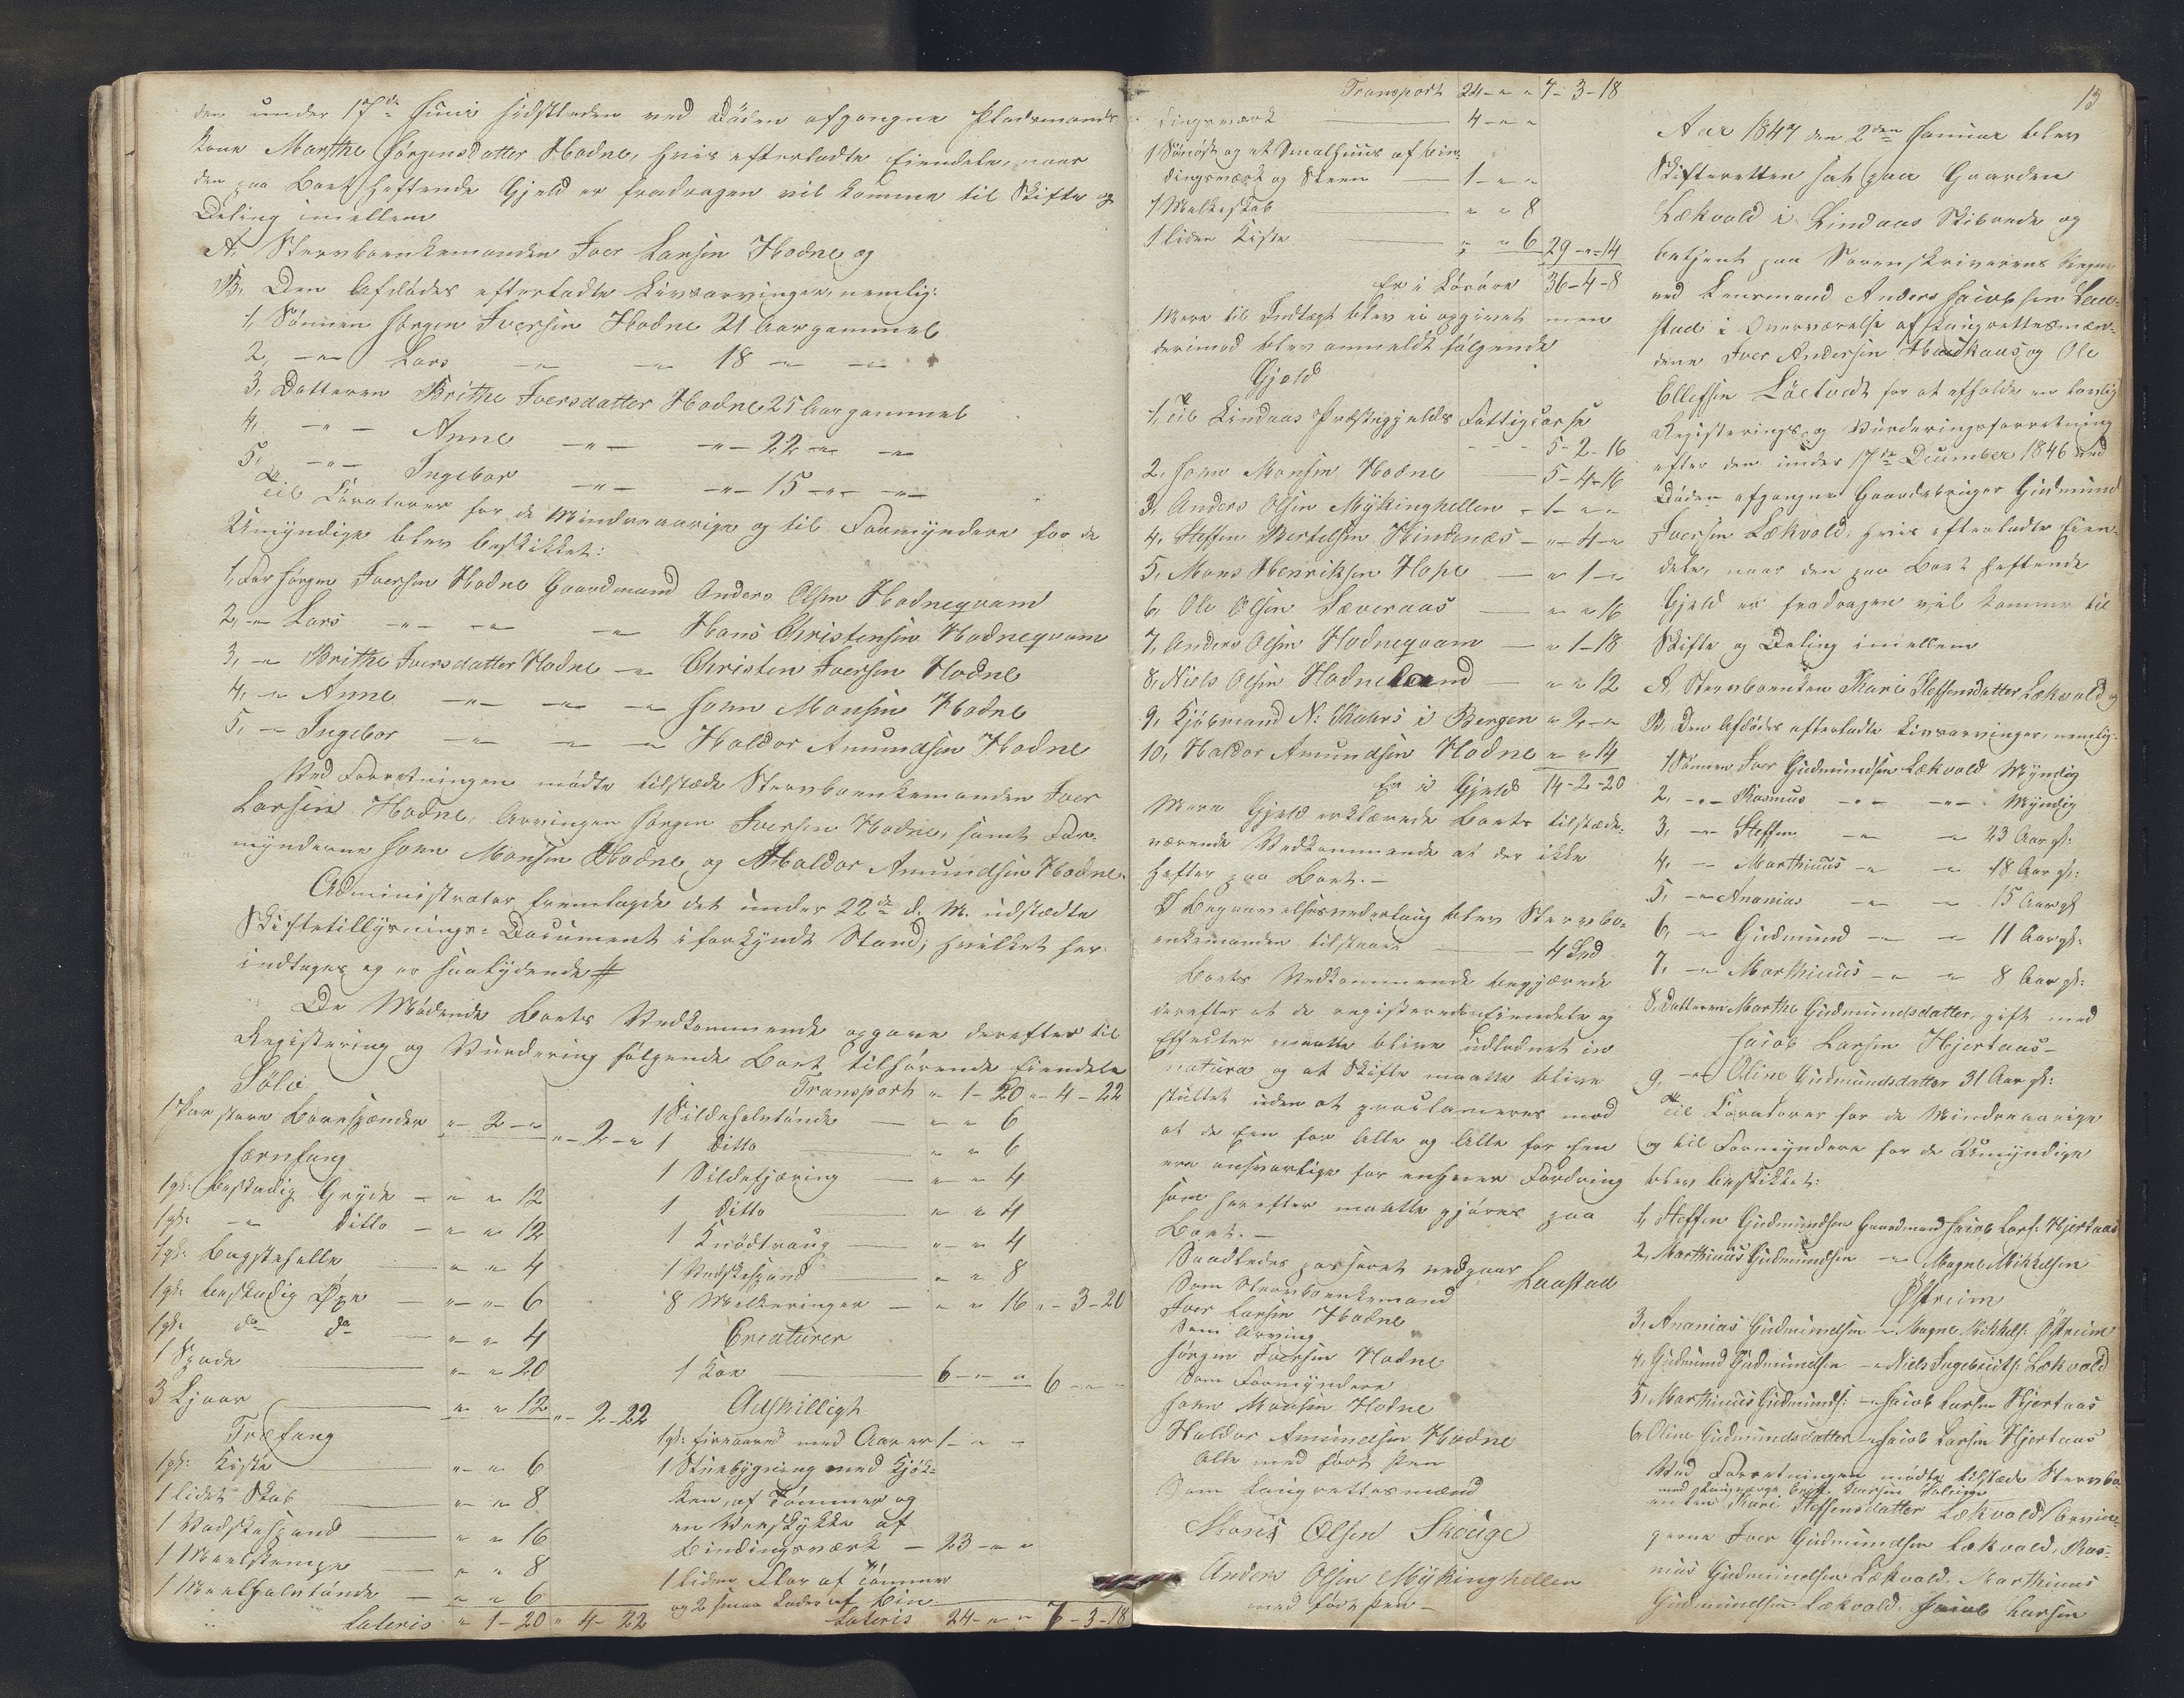 den under 17de Junii sidstleden ved Døden afgangne Pladsmands
Kone Marthe Jørgensdatter Hodne, hvis efterladte Eiendele, naar
den paa Boet heftende Gjeld er fradragen vil komme til Skifte og
Deling imellem
A, Stervboenkemanden Iver Larsen Hodne og
B, Den Afdødes efterladte Livsarvinger, nemlig:
1, Sønnen Jørgen Iversen Hodne 21 Aar gammel
2, -"- Lars -"- -"- 18 -"- -"-
3, Datteren Brithe Iversdatter Hodne 25 Aar gammel
4, -"- Anne -"- -"- 22 -"- -"-
5, -"- Ingebor -"- -"- 15 -"- -"-
Til Curatorer for de Mindreaarige og til Formyndere for de
Umyndige blev beskikket:
1, For Jørgen Iversen Hodne Gaardmand Anders Olsen Hodneqvam
2, -"- Lars -"- -"- -"- Hans Christensen Hodneqvam
3, -"- Brithe Iversdatter Hodne -"- Christen Iversen Hodne
4, -"- Anne -"- -"- -"- John Monsen Hodne
5, -"- Ingebor -"- -"- -"- Haldor Amundsen Hodne
Ved Forretningen mødte tilstæde Stervboenkemanden Iver
Larsen Hodne, Arvingen Jørgen Iversen Hodne, samt For-
mynderne John Monsen Hodne og Haldor Amundsen Hodne.
Administrator fremlagde det under 22de d. M. udstædte
Skiftetillysnings-Document i forkyndt Stand, hvilket her
indtages og er saalydende #
De Mødende Boets Vedkommende opgave derefter til
Registering og Vurdering følgende Boet tilhørende Eiendele
Sølv
1 Par større Borespænder " - 2 - " " - 2 - "
Jernfang
1 gl: beskadig Gryde - " " 12
1 gl: -"- Ditto - " " 12
1 gl: Bagstehelle " " 4
1 gl: beskadig Øxe " " 6
1 gl: do do " " 4
1 Spade " " 20
3 Ljaaer " " 12 " - 2 - 22
Træfang
1 gl: Kiste " " 6
1 lidet Skab " " 8
1 Vadskespand " " 16
1 Meelstampe " " 8
1 Meelhalvtønde " " 6
Lateris " 1 - 20 " 4 - 22
Transport " 1 - 20 " 4 - 22
1 Sildehalvtønde " " 6
1 Ditto " " 6
1 Sildefjæring " " 4
1 Ditto " " 4
1 Knødtraug " " 4
1 Vadskespand " " 8
8 Melkeringer " " 16 " - 3 - 20
Creaturer
1 Koe 6 - " " 6 - " "
Adskilligt
1 gl: firaared med Aarer 1 - " -
1 Stuebygning med Kjøk-
ken, af Tømmer og
en Veeskykke af
Bindingsværk - 23 - " "
1 liden Flor af Tømmer
og 2 smaa Lader af bin-
Lateris 24 - " " 7 - 3 - 18
Transport 24 - " " 7 - 3 - 18
dingsværk 4 - " "
1 Sønøst og et Smalhuus af bin-
dingsværk og Steen 1 - " "
1 Melkeskab " " 8
1 liden Kiste " " 6 29 - " - 14
Er i Løsøre 36 - 4 - 8
Mere til Indtægt blev ei opgivet men
derimod blev anmeldt følgende
Gjeld
1, til Lindaas Præstegjelds Fattigcasse
5 - 2 - 16
2, John Monsen Hodne 5 - 4 - 16
3, Anders Olsen Mykinghellen - 1 - " "
4, Steffen Bertelsen Hindenæs - " - 4 - "
5, Mons Henriksen Hope - " 1 - "
6, Ole Olsen Sæveraas " " 16
7, Anders Olsen Hodneqvam - " 1 - 18
8, Niels Olsen Hodneland - " " 12
9, Kjøbmand N: Rahrs i Bergen " 2 - "
10, Haldor Amundsen Hodne " " 14
Er i Gjeld 14 - 2 - 20
Mere Gjeld erklærede Boets tilstæde-
værende Vedkommende at der ikke
hefter paa Boet. -
I Begravelsesvederlaug blev Stervbo-
enkemanden tilstaaet 4 Spd
Boets Vedkommende begjærede
derefter at de registerede Eiendele og
Effecter maatte blive udlodnet in
natura og at Skifte maatte blive
sluttet uden at proclameres mod
at de Een for Alle og Alle for Een
ere ansvarlige for enhver Fordring
som herefter maatte gjøres paa
Boet. -
Saaledes passeret vedgaaer
Laastad
Som Stervboenkemand
Iver Larsen Hodne
Som Arving
Jørgen Iversen Hodne
Som Formyndere
John Monsen Hodne
Haldor Amundsen Hodne
Alle med ført Pen
Som Laugrettesmænd
Monis Olsen Skouge
Anders Olsen Mykinghellen
med ført Pen -
13
Aar 1847 den 2den Januar blev
Skifteretten sat paa Gaarden
Lækvold i Lindaas Skibrede og
betjent paa Sorenskriverens Vegne
ved Lensmand Anders Jacobsen Laa-
stad i Overværelse af Laugrettesmæn-
dene Iver Andersen Haukaas og Ole
Ellefsen Løetvedt for at afholde en lovlig
Registerings og Vurderingsforretning
efter den under 17de December 1846 ved
Døden afgangne Gaardebruger Gudmund
Iversen Lækvold, hvis efterladte Eien-
dele, naar den paa Boet heftende
Gjeld er fradragen vil komme til
Skifte og Deling imellem
A, Stervboenken Mari Steffensdatter Lækvold og
B, Den Afdødes efterladte Livsarvinger, nemlig:
1 Sønnen Iver Gudmundsen Lækvold Myndig
2, -"- Rasmus -"- -"- Myndig
3, -"- Steffen -"- -"- 23 Aar gl:
4, -"- Marthinus -"- -"- 18 Aar gl:
5, -"- Ananias -"- -"- 15 Aar gl
6, -"- Gudmund -"- -"- 11 Aar gl:
7, -"- Marthinus -"- -"- 8 Aar gl:
8 Datteren Marthe Gudmundsdatter, gift med
Jacob Larsen Hjertaas -
9, -"- Oline Gudmundsdatter 31 Aar gl:
Til Curatorer for de Mindreaarige
og til Formyndere for de Umyndige
blev beskikket:
1, Steffen Gudmundsen Gaardmand Jacob Lars: Hjertaas
2, Marthinus Gudmundsen -"- Magne Mikkelsen
Østreim
3, Ananias Gudmundsen -"- Magne Mikkels: Østreim
4, Gudmund Gudmundsen -"- Niels Ingebrigts: Lækvold
5, Marthinus Gudmunds: -"- Jacob Larsen Hjertaas
6, Oline Gudmundsdatter -"- Jacob Larsen Hjertaas
Ved Forretningen mødte tilstæde Stervbo-
med Laugværge Iversen
enken Mari Steffensdatter Lækvold Arvin-
gerne Iver Gudmundsen Lækvold, Ras-
mus Gudmundsen Lækvold, Marthinus
Gudmundsen Lækvold, Jacob Larsen